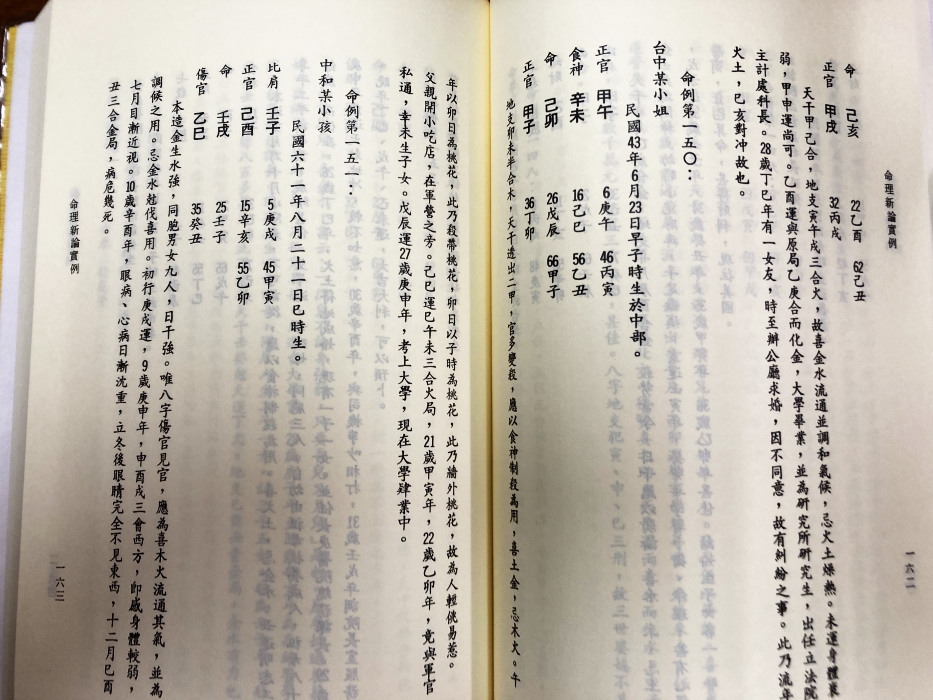 命理新論實例
命　己亥　22乙酉　62己丑
正官　甲戌　32丙戌
天干甲己合，地支寅午戌三合火，故喜金水流通並調和氣候，忌火土燥熱。未運身體衰
弱，甲申運尚可。乙酉運與原局乙庚合而化金，大學畢業，並為研究所研究生，出任立法院
主計處科長。28歲丁巳年有一女友，時至辦公廳求婚，因不同意，故有糾紛之事。此乃流年
火土，巳亥對冲故也。
命例第一五〇：
台中某小姐
民國43年6月23日早子時生於中部。
正官　甲午　6庚午　46丙寅
食神　辛未　16己巳　56乙丑
命　己卯　26戊辰　66甲子
正官　甲子　36丁卯
地支卯未半合木，天干透出二甲，官多變殺，應以食神制殺為用，喜土金，忌木火。午
一六二
年以卯日為桃花，此乃殺帶桃花，卯日以子時為桃花，此乃牆外桃花，故為人輕佻易惹。
父親開小吃店，在軍營之旁。己巳運巳午未三合火局，21歲甲寅年，22歲乙卯年，竟與軍官
私通，幸未生子女。戊辰運27歲庚申年，考上大學，現在大學肄業中。
命例第一五一：
中和某小孩
民國六十一年八月二十一日巳時生。
比肩　壬子　5庚戌　45甲寅
正官　己酉　15辛亥　55乙卯
命　壬戌　25壬子
傷官　乙巳　35癸丑
本造金生水強，同胞男女九人，日干強。唯八字傷官見官，應為喜木火流通其氣，並為
調候之用。忌金水尅伐喜用。初行庚戌運，9歲庚申年，申酉戌三會西方，即感身體較弱，
七月目漸近視。10歲辛酉年，眼病、心病日漸沈重，立冬後眼睛完全不見東西，十二月巳酉
丑三合金局，病危幾死。
命理新論實例
一六三